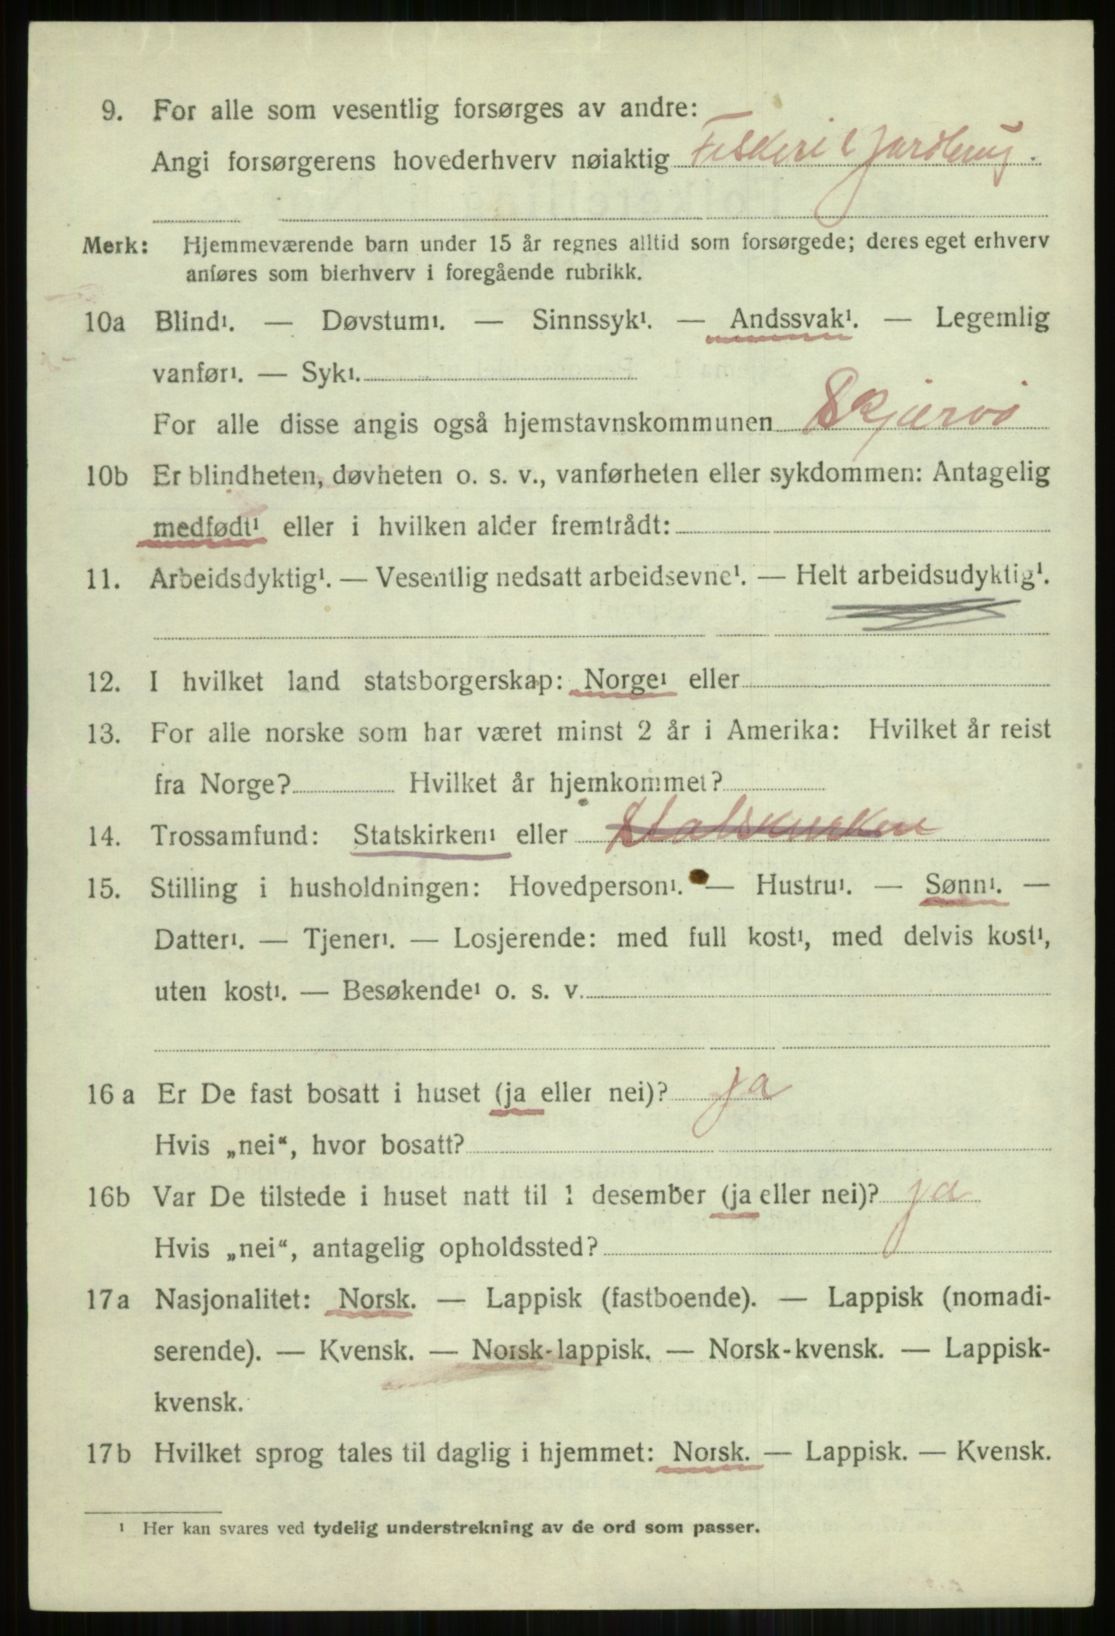 9. For alle som vesentlig forsørges av andre:
Angi forsørgerens hovederhverv nøiaktig Fiskeri & jordbrug.
Merk: Hjemmeværende barn under 15 år regnes alltid som forsørgede; deres eget erhverv
anføres som bierhverv i foregående rubrikk.
10a Blind¹. — Døvstum¹. — Sinnssyk¹. — Andssvak¹. — Legemlig
vanfør¹. — Syk¹.
For alle disse angis også hjemstavnskommunen Skjervø
10b Er blindheten, døvheten o. s. v., vanførheten eller sykdommen: Antagelig
medfødt¹ eller i hvilken alder fremtrådt:
11. Arbeidsdyktig¹. — Vesentlig nedsatt arbeidsevne¹. — Helt arbeidsudyktig¹.
12. I hvilket land statsborgerskap: Norge¹ eller
13. For alle norske som har været minst 2 år i Amerika: Hvilket år reist
fra Norge? Hvilket år hjemkommet?
14. Trossamfund: Statskirken¹ eller Statskirken
15. Stilling i husholdningen: Hovedperson¹. — Hustru¹. — Sønn¹. —
Datter¹. — Tjener¹. — Losjerende: med full kost¹, med delvis kost¹,
uten kost¹. — Besøkende¹ o. s. v.
16 a Er De fast bosatt i huset (ja eller nei)? ja
Hvis „nei“, hvor bosatt?
16b Var De tilstede i huset natt til 1 desember (ja eller nei)? ja
Hvis „nei“, antagelig opholdssted?
17a Nasjonalitet: Norsk. — Lappisk (fastboende). — Lappisk (nomadi-
serende). — Kvensk. — Norsk-lappisk. — Norsk-kvensk. — Lappisk-
kvensk.
17b Hvilket sprog tales til daglig i hjemmet: Norsk. — Lappisk. — Kvensk.
¹ Her kan svares ved tydelig understrekning av de ord som passer.